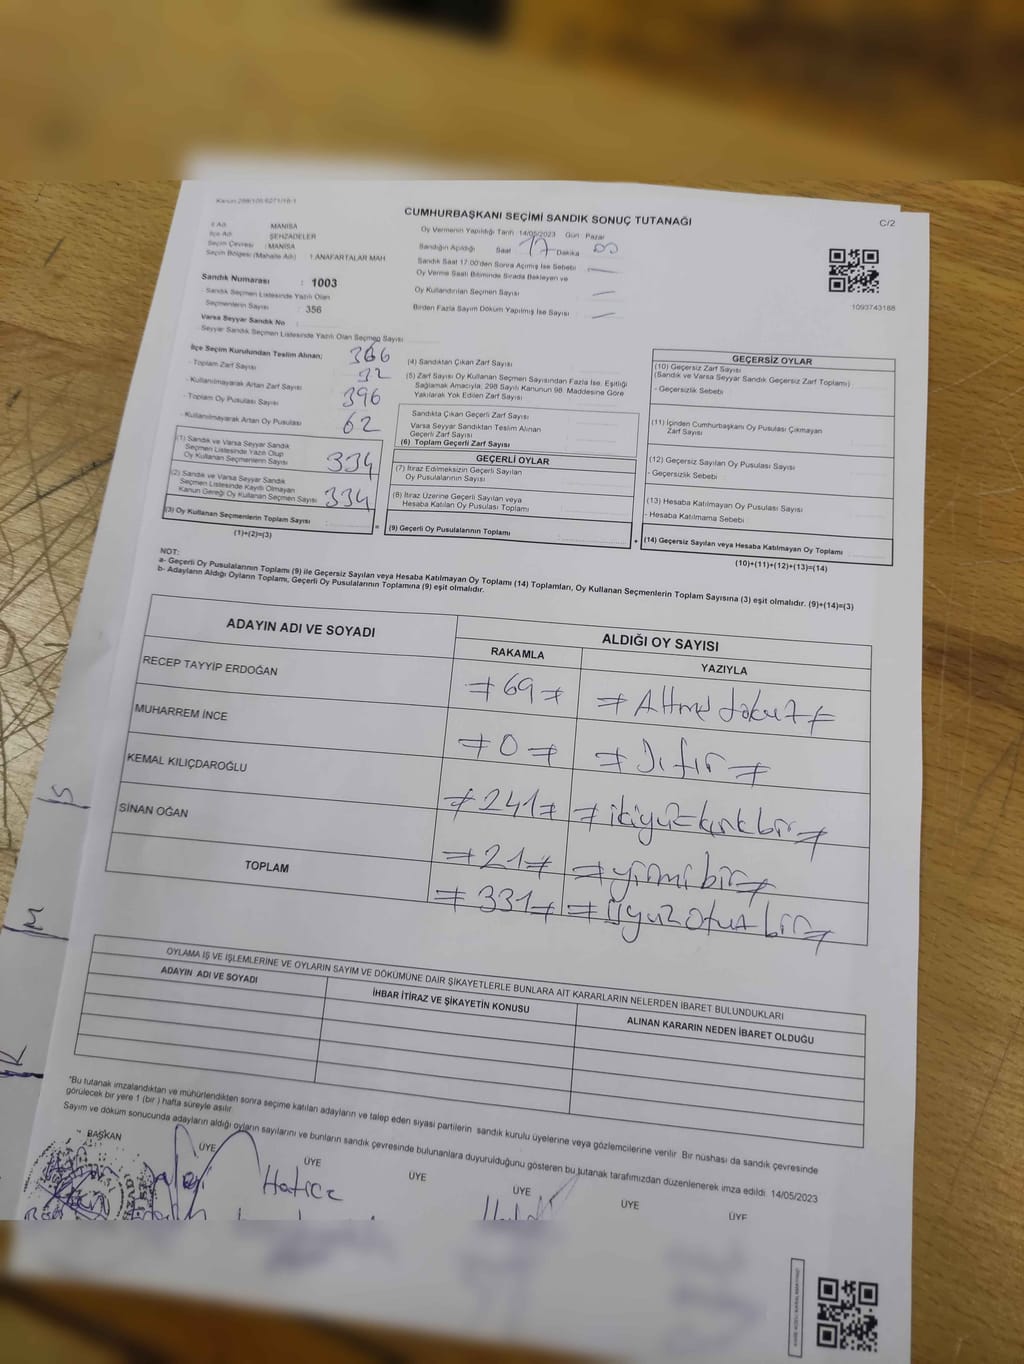 Kanun:298/105 6271/16-1
CUMHURBAŞKANI SEÇİMİ SANDIK SONUÇ TUTANAĞI
C/2
İl Adı : MANİSA
İlçe Adı : ŞEHZADELER
Seçim Çevresi : MANİSA
Seçim Bölgesi (Mahalle Adı) : 1.ANAFARTALAR MAH
Oy Vermenin Yapıldığı Tarih : 14/05/2023 Gün : Pazar
Sandığın Açıldığı Saat 17 Dakika 00
Sandık Saat 17:00'den Sonra Açılmış İse Sebebi
Oy Verme Saati Bitiminde Sırada Bekleyen ve
Oy Kullandırılan Seçmen Sayısı
Birden Fazla Sayım Döküm Yapılmış İse Sayısı
1093743188
Sandık Numarası : 1003
Sandık Seçmen Listesinde Yazılı Olan
Seçmenlerin Sayısı : 356
Varsa Seyyar Sandık No :
Seyyar Sandık Seçmen Listesinde Yazılı Olan Seçmen Sayısı
İlçe Seçim Kurulundan Teslim Alınan;
- Toplam Zarf Sayısı 366
- Kullanılmayarak Artan Zarf Sayısı 32
- Toplam Oy Pusulası Sayısı 396
- Kullanılmayarak Artan Oy Pusulası 62
(1) Sandık ve Varsa Seyyar Sandık
Seçmen Listesinde Yazılı Olup
Oy Kullanan Seçmenlerin Sayısı 334
(2) Sandık ve Varsa Seyyar Sandık
Seçmen Listesinde Kayıtlı Olmayan
Kanun Gereği Oy Kullanan Seçmen Sayısı 334
(3) Oy Kullanan Seçmenlerin Toplam Sayısı
(1)+(2)=(3)
(4) Sandıktan Çıkan Zarf Sayısı
(5) Zarf Sayısı Oy Kullanan Seçmen Sayısından Fazla İse, Eşitliği
Sağlamak Amacıyla, 298 Sayılı Kanunun 98. Maddesine Göre
Yakılarak Yok Edilen Zarf Sayısı
Sandıkta Çıkan Geçerli Zarf Sayısı
Varsa Seyyar Sandıktan Teslim Alınan
Geçerli Zarf Sayısı
(6) Toplam Geçerli Zarf Sayısı
GEÇERLİ OYLAR
(7) İtiraz Edilmeksizin Geçerli Sayılan
Oy Pusulalarının Sayısı
(8) İtiraz Üzerine Geçerli Sayılan veya
Hesaba Katılan Oy Pusulası Toplamı
(9) Geçerli Oy Pusulalarının Toplamı
GEÇERSİZ OYLAR
(10) Geçersiz Zarf Sayısı
(Sandık ve Varsa Seyyar Sandık Geçersiz Zarf Toplamı)
- Geçersizlik Sebebi
(11) İçinden Cumhurbaşkanı Oy Pusulası Çıkmayan
Zarf Sayısı
(12) Geçersiz Sayılan Oy Pusulası Sayısı
- Geçersizlik Sebebi
(13) Hesaba Katılmayan Oy Pusulası Sayısı
- Hesaba Katılmama Sebebi
(14) Geçersiz Sayılan veya Hesaba Katılmayan Oy Toplamı
(10)+(11)+(12)+(13)=(14)
NOT:
a- Geçerli Oy Pusulalarının Toplamı (9) ile Geçersiz Sayılan veya Hesaba Katılmayan Oy Toplamı (14) Toplamları, Oy Kullanan Seçmenlerin Toplam Sayısına (3) eşit olmalıdır. (9)+(14)=(3)
b- Adayların Aldığı Oyların Toplamı, Geçerli Oy Pusulalarının Toplamına (9) eşit olmalıdır.
ADAYIN ADI VE SOYADI ALDIĞI OY SAYISI
RAKAMLA YAZIYLA
RECEP TAYYİP ERDOĞAN 69 Altmış dokuz
MUHARREM İNCE 0 Sıfır
KEMAL KILIÇDAROĞLU 241 ikiyüz kırk bir
SİNAN OĞAN 21 yirmi bir
TOPLAM 331 üçyüz otuz bir
OYLAMA İŞ VE İŞLEMLERİNE VE OYLARIN SAYIM VE DÖKÜMÜNE DAİR ŞİKAYETLERLE BUNLARA AİT KARARLARIN NELERDEN İBARET BULUNDUKLARI
ADAYIN ADI VE SOYADI İHBAR İTİRAZ VE ŞİKAYETİN KONUSU ALINAN KARARIN NEDEN İBARET OLDUĞU
*Bu tutanak imzalandıktan ve mühürlendikten sonra seçime katılan adayların ve talep eden siyasi partilerin sandık kurulu üyelerine veya gözlemcilerine verilir. Bir nüshası da sandık çevresinde
görülecek bir yere 1 (bir) hafta süreyle asılır.
Sayım ve döküm sonucunda adayların aldığı oyların sayılarını ve bunların sandık çevresinde bulunanlara duyurulduğunu gösteren bu tutanak tarafımızdan düzenlenerek imza edildi. 14/05/2023
BAŞKAN ÜYE ÜYE ÜYE ÜYE ÜYE ÜYE
Hatice